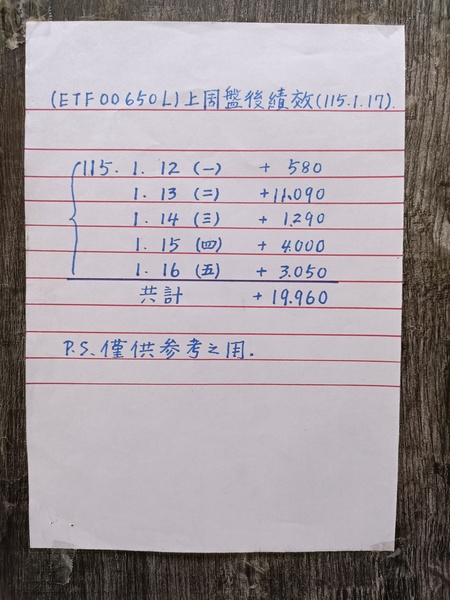 (ETF00650L)上周盤後績效(115.1.17).
115. 1. 12 (一) + 580
1. 13 (二) +11.090
1. 14 (三) + 1.290
1. 15 (四) + 4.000
1. 16 (五) + 3.050
共計 + 19.960
P.S. 僅供参考之用.